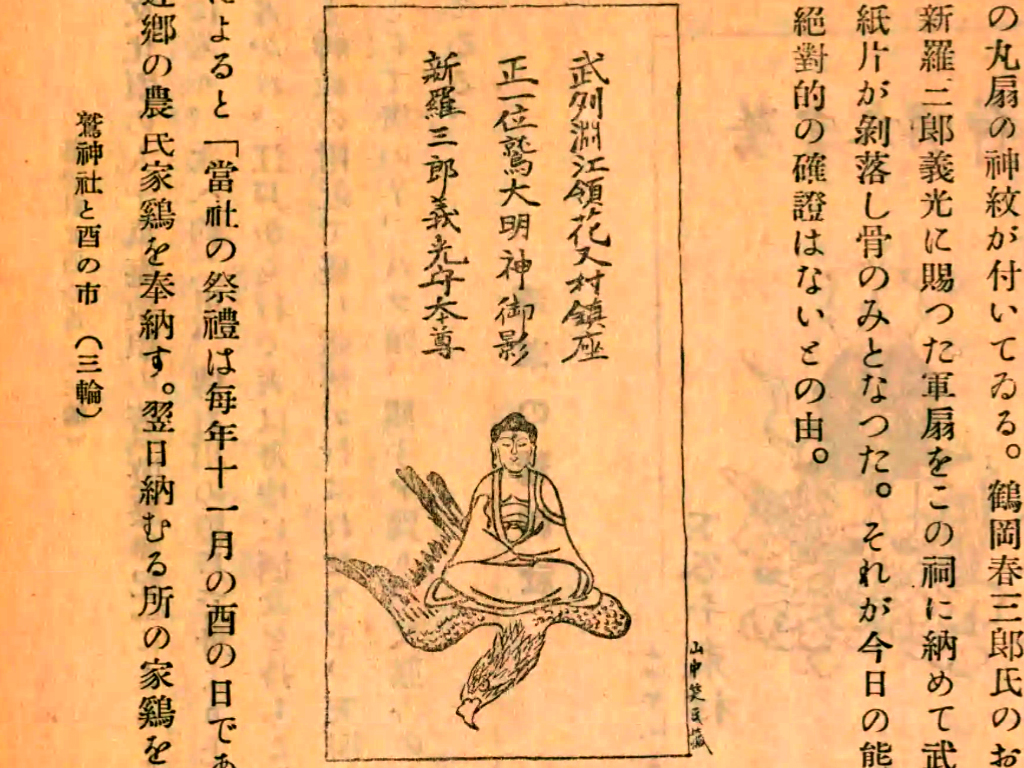 の丸扇の神紋が付いてゐる。鶴岡春三郎氏のお
新羅三郎義光に賜つた軍扇をこの祠に納めて武
紙片が剝落し骨のみとなつた。それが今日の能
絕對的の確證はないとの由。
武列淵江領花又村鎮座
正一位鷲大明神御影
新羅三郎義光守本尊
山中笑氏蔵
によると「當社の祭禮は每年十一月の酉の日であ
近鄕の農民家鷄を奉納す。翌日納むる所の家鷄を
鷲神社と酉の市 (三輪)